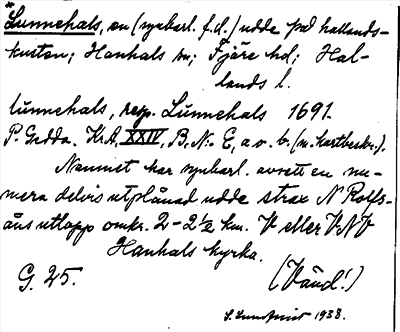 *Lunnehals, en (synbarl. f.d.) udde på hallands-
kusten; Hanhals sn; Fjäre hd; Hal-
lands l.
lunnehals, resp. Lünnehals 1691.
P. Gedda. Kr.A. XXIV, B, N:o E, a o. b. (u. kartbeskr.).
Namnet har synbarl. avsett en nu-
mera delvis utplånad udde strax N Rolfs-
åns utlopp omkr. 2-2½ km. V eller VNV
Hanhals kyrka.
G. 25. (Vänd!)
1938.